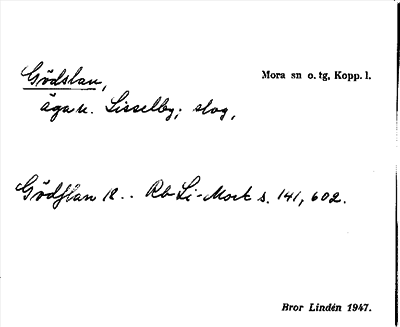 Gödslan,
Mora sn o. tg, Kopp. l.
ägan. Lisselby; slog,
Gödslan R.. Rb Li-Mork s. 141, 602.
Bror Lindén 1947.